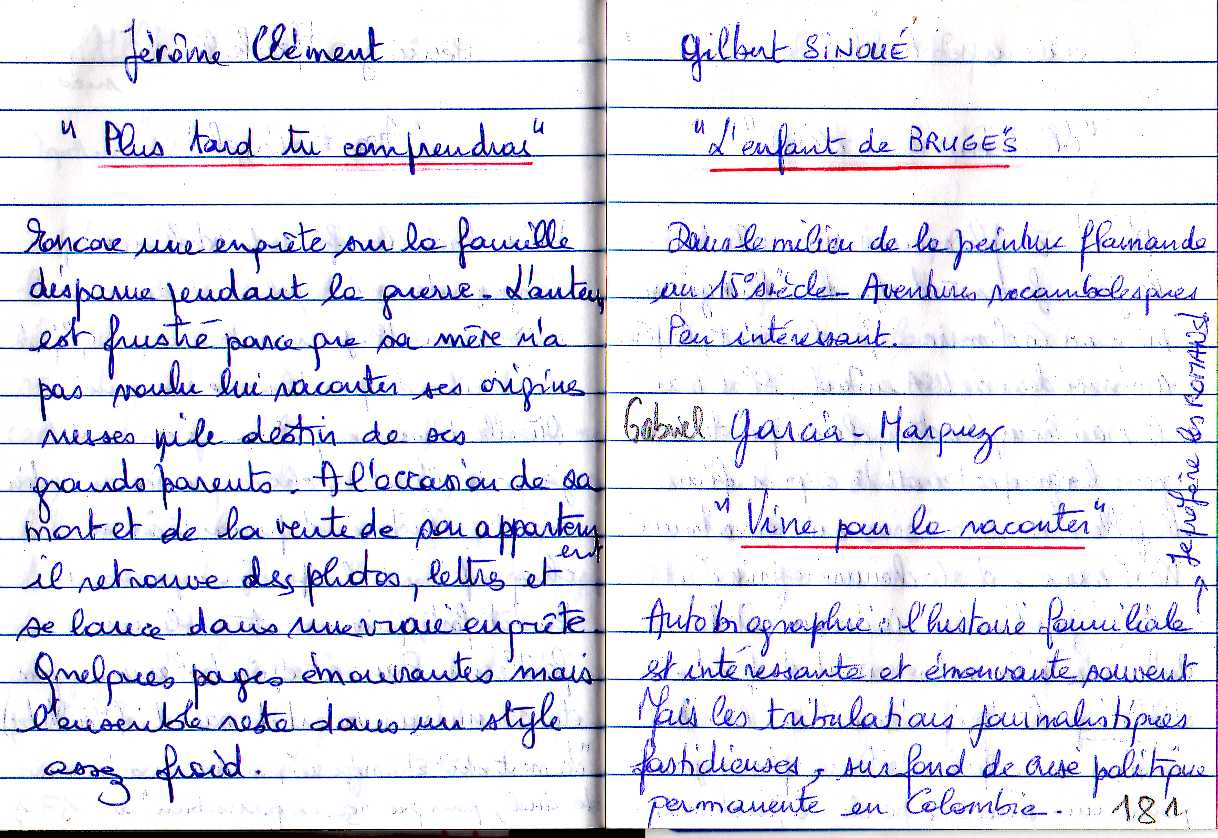 Jérôme Clément
"Plus tard tu comprendras"
Encore une enquête sur la famille
disparue pendant la guerre - L'auteur
est frustré parce que sa mère n'a
pas voulu lui raconter ses origines
russes ni le destin de ses
grands parents. A l'occasion de sa
mort et de la vente de son appartem
ent
il retrouve des photos, lettres et
se lance dans une vraie enquête.
Quelques pages émouvantes mais
l'ensemble reste dans un style
assez froid.
Gilbert SINOUÉ
"L'enfant de BRUGES"
Dans le milieu de la peinture flamande
au 15e siècle - Aventures rocambolesques
Peu intéressant.
Gabriel Garcia-Marquez
"Vivre pour la raconter"
Autobiographie : l'histoire familiale
est intéressante et émouvante souvent
Mais les tribulations journalistiques
fastidieuses, sur fond de crise politique
permanente en Colombie.
→ Je préfère les ROMANS!
181